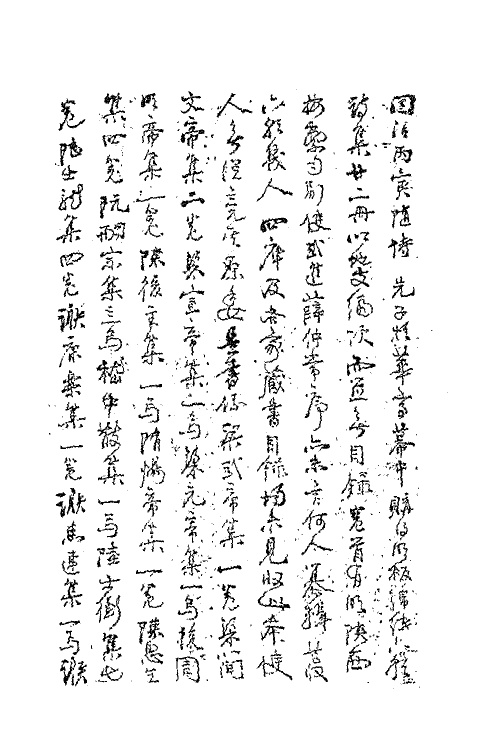 同治丙寅随侍 先子於華亭幕中購得明板綿紙六朝
詩集廿二冊以地支編次而并無目錄卷首有明陝西
按察司副使武進薛仲常序亦未言何人纂輯
四庫及各家藏書目錄均未見收
人無從究原委其書係梁武帝集一卷梁簡
文帝集二卷梁宣帝集一卷梁元帝集一卷後周
明帝集一卷陳後主集一卷隋煬帝集一卷陳思王
集四卷阮嗣宗集三卷嵇中散集一卷陸士衡集七
卷陸士龍集四卷謝康樂集一卷謝惠連集一卷謝